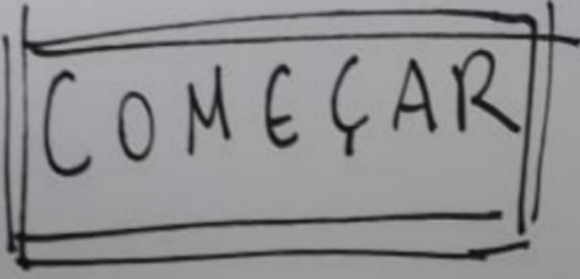 COMEÇAR